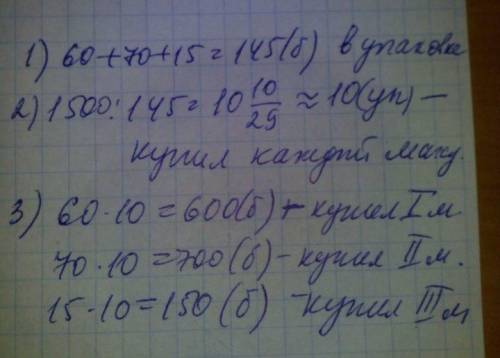 1) 60+70+15=145(б) в упаковке
2) 1500:145=10 10/29 ≈ 10(уп) –
купил каждый магу.
3) 60·10=600(б) – купил I м.
70·10=700(б) – купил II м.
15·10=150(б) – купил III м